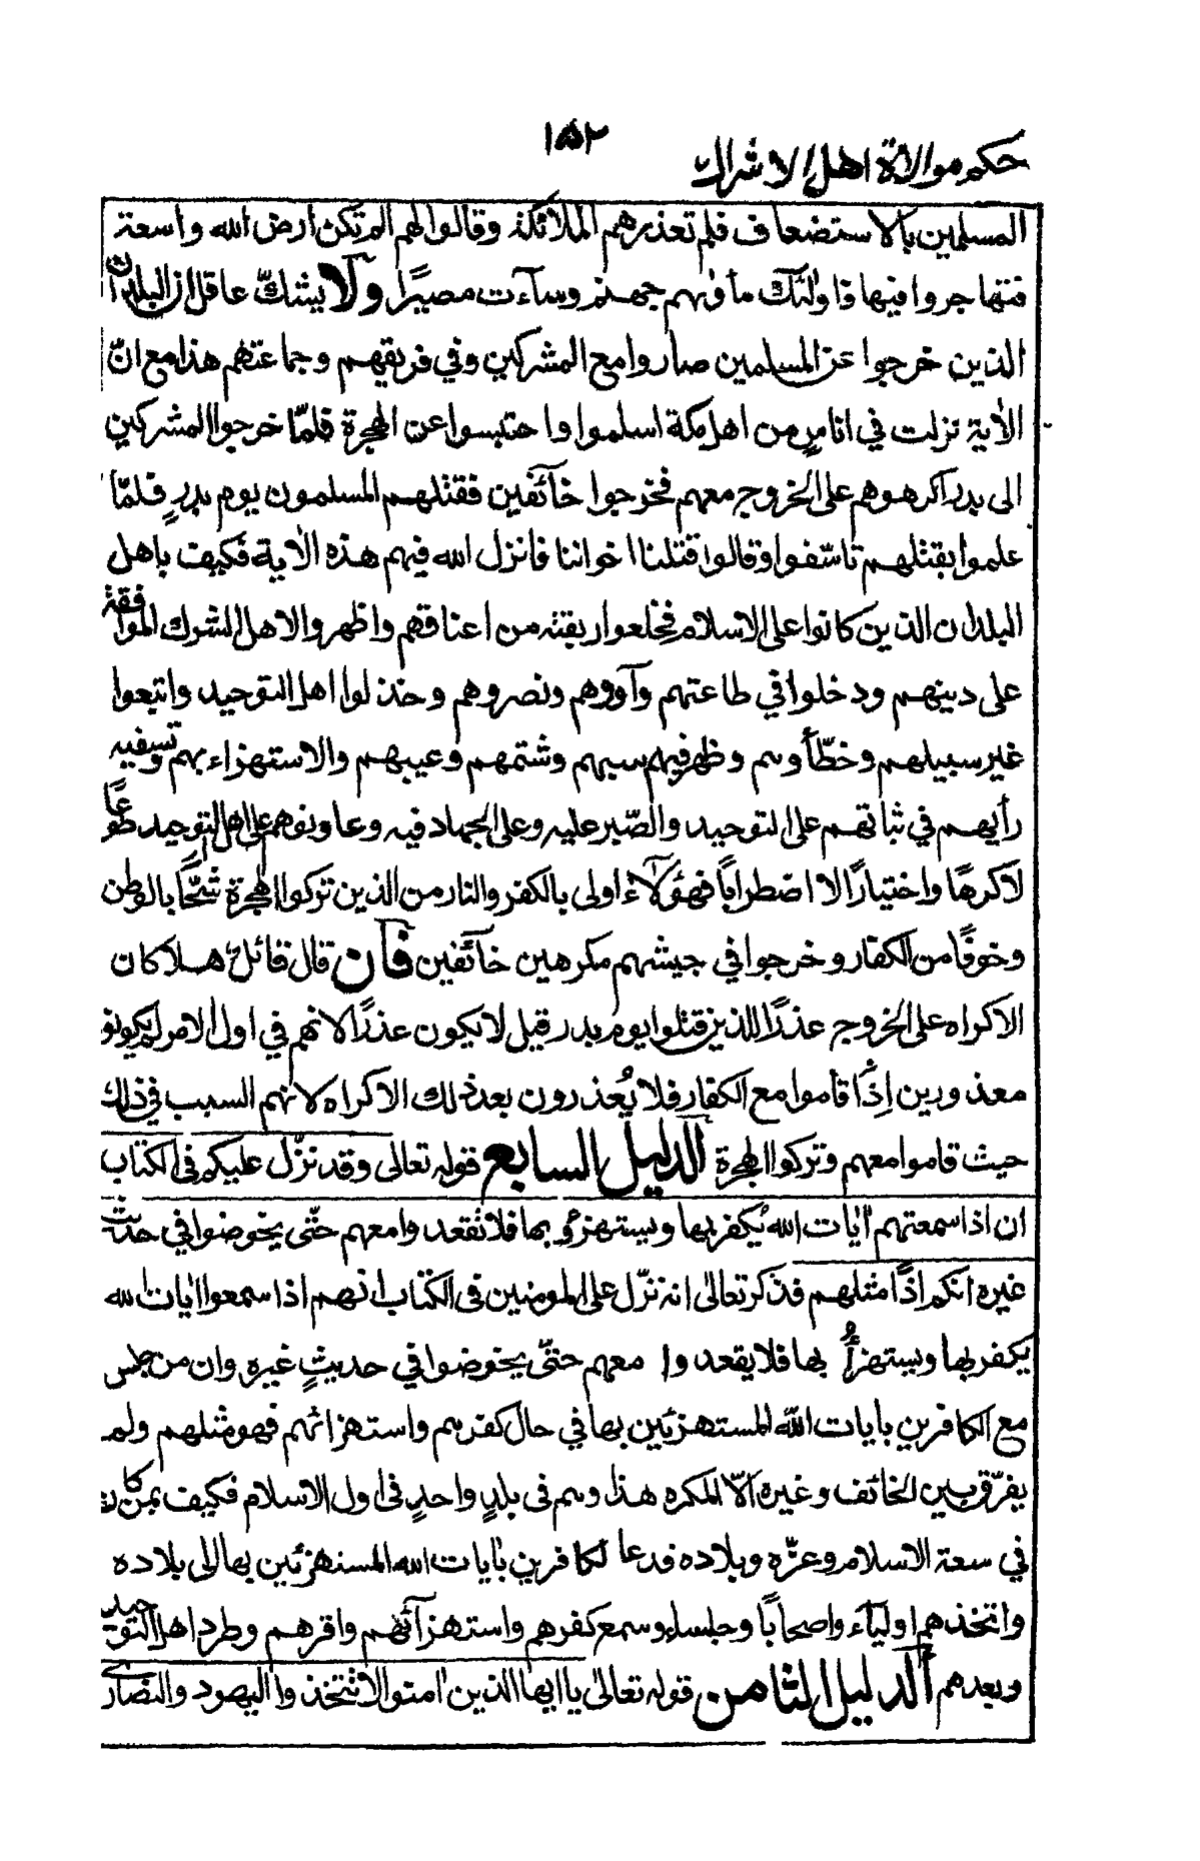 ١٥٢
حكم موالاة اهل الاشراك
المسلمين بالاستضعاف فلم تعذرهم الملائكة وقالوا لهم الم تكن ارض الله واسعة
فتهاجروا فيها فاولئك مأوىهم جهنم وسآءت مصيرًا ولا يشكّ عاقل ان البلدان
الذين خرجوا عن المسلمين صاروا مع المشركين وفي فريقهم وجماعتهم هذا مع انّ
الاٰية نزلت في اناسٍ من اهل مكة اسلموا واحتبسوا عن الهجرة فلمّا خرجوا المشركين
الى بدر اكرهوهم على الخروج معهم فخرجوا خآئفين فقتلهم المسلمون يوم بدرٍ فلمّا
علموا بقتلهم تاسّفوا وقالوا قتلنا اخواننا فانزل الله فيهم هذه الاٰية فكيف باهل
البلدان الذين كانوا على الاسلام فخلعوا ربقته من اعناقهم واظهروا لاهل الشرك الموافقة
على دينهم ودخلوا في طاعتهم وآووهم ونصروهم وخذلوا اهل التوحيد واتبعوا
غير سبيلهم وخطّأوهم وظهر فيهم سبهم وشتمهم وعيبهم والاستهزاء بهم وتسفيه
رأيهم في ثباتهم على التوحيد والصّبر عليه وعلى الجهاد فيه وعاونوهم على اهل التوحيد طوعًا
لا كرهًا واختيارًا لا اضطرابًا فهؤلآء اولى بالكفر والنار من الذين تركوا الهجرة شُحًّا بالوطن
وخوفًا من الكفار وخرجوا في جيشهم مكرهين خآئفين فان قال قائلٌ هلا كان
الاكراه على الخروج عذرًا للذين قتلوا يوم بدر قيل لا يكون عذرًا لانهم في اول الامر لم يكونو
معذورين اِذْ اقاموا مع الكفار فلا يُعذرون بعد ذلك الاكراه لانهم السبب في ذلك
حيث قاموا معهم وتركوا الهجرة الدليل السابع قوله تعالى وقد نزّل عليكم فى الكتاب
ان اذا سمعتهم اٰيات الله يُكفر بها ويستهزؤ بها فلا تقعدوا معهم حتّى يخوضوا في حديث
غيره انكم اذًا مثلهم فذكر تعالى انه نزّل على المومنين فى الكتاب انهم اذا سمعوا ايات الله
يكفر بها ويستهزأُ بها فلا يقعدوا معهم حتّى يخوضوا في حديثٍ غيره وان من جلس
مع الكافرين بايات اللّه المستهزئين بها في حال كفرهم واستهزائهم فهو مثلهم ولم
يفرّق بين الخائف وغيره الّا المكره هذا وهم فى بلدٍ واحدٍ فى اول الاسلام فكيف بمن كان
في سعة الاسلام وعزّه وبلاده فدعا لكافرين بايات الله المستهزئين بها الى بلاده
واتخذهم اوليآء واصحابًا وجلساء وسمع كفرهم واستهزآئهم واقرهم وطرد اهل التوحيد
وبعدهم الدليل الثامن قوله تعالى يا ايها الذين امنوا لا تتخذوا اليهود والنصارى